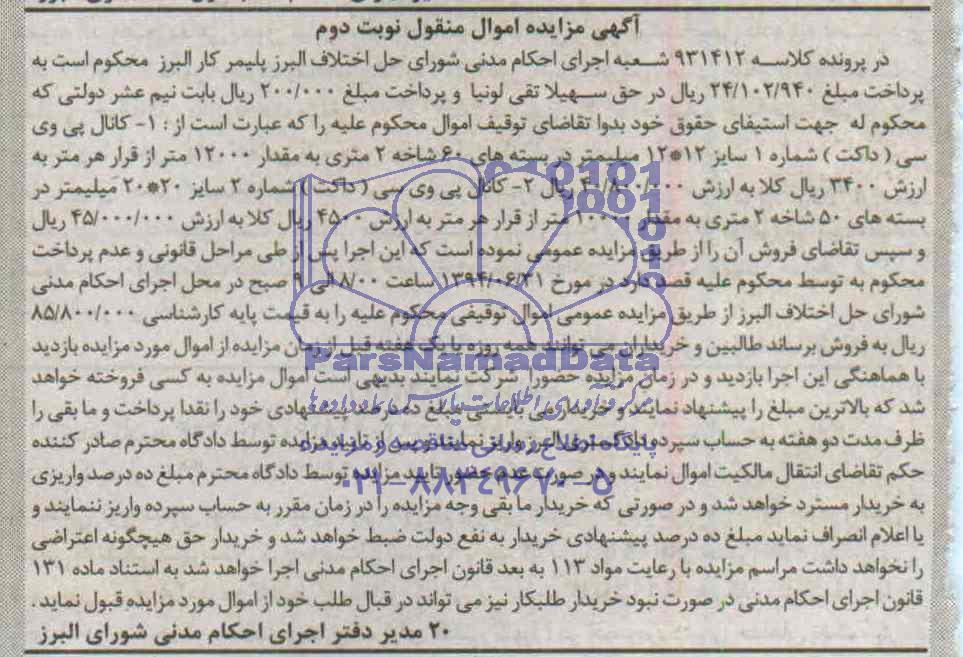 آگهی مزایده اموال منقول نوبت دوم
در پرونده کلاسه ۹۳۱۴۱۲ شعبه اجرای احکام مدنی شورای حل اختلاف البرز پلیمر کار البرز محکوم است به
پرداخت مبلغ ۲۴/۱۰۲/۹۴۰ ریال در حق سهیلا تقی لونیا و پرداخت مبلغ ۲۰۰/۰۰۰ ریال بابت نیم عشر دولتی که
محکوم له جهت استیفای حقوق خود بدوا تقاضای توقیف اموال محکوم علیه را که عبارت است از : ۱- کانال پی وی
سی ( داکت ) شماره ۱ سایز ۱۲*۱۲ میلیمتر در بسته های ۶۰ شاخه ۲ متری به مقدار ۱۲۰۰۰ متر از قرار هر متر به
ارزش ۳۴۰۰ ریال کلا به ارزش ۴۰/۸۰۰/۰۰۰ ریال ۲- کانال پی وی سی ( داکت ) شماره ۲ سایز ۲۰*۲۰ میلیمتر در
بسته های ۵۰ شاخه ۲ متری به مقدار ۱۰۰۰۰ متر از قرار هر متر به ارزش ۴۵۰۰ ریال کلا به ارزش ۴۵/۰۰۰/۰۰۰ ریال
و سپس تقاضای فروش آن را از طریق مزایده عمومی نموده است که این اجرا پس از طی مراحل قانونی و عدم پرداخت
محکوم به توسط محکوم علیه قصد دارد در مورخ ۱۳۹۴/۰۶/۳۱ ساعت ۸/۰۰ الی ۹ صبح در محل اجرای احکام مدنی
شورای حل اختلاف البرز از طریق مزایده عمومی اموال توقیفی محکوم علیه را به قیمت پایه کارشناسی ۸۵/۸۰۰/۰۰۰
ریال به فروش برساند طالبین و خریداران می توانند همه روزه تا یک هفته قبل از زمان مزایده از اموال مورد مزایده بازدید
با هماهنگی این اجرا بازدید و در زمان مزایده حضورا شرکت نمایند بدیهی است اموال مزایده به کسی فروخته خواهد
شد که بالاترین مبلغ را پیشنهاد نمایند و خریدار می بایستی مبلغ ده درصد پیشنهادی خود را نقدا پرداخت و ما بقی را
ظرف مدت دو هفته به حساب سپرده دادگستری البرز واریز نمایند و پس از تایید مزایده توسط دادگاه محترم صادر کننده
حکم تقاضای انتقال مالکیت اموال نمایند و در صورت عدم حضور تایید مزایده توسط دادگاه محترم مبلغ ده درصد واریزی
به خریدار مسترد خواهد شد و در صورتی که خریدار ما بقی وجه مزایده را در زمان مقرر به حساب سپرده واریز ننمایند و
یا اعلام انصراف نماید مبلغ ده درصد پیشنهادی خریدار به نفع دولت ضبط خواهد شد و خریدار حق هیچگونه اعتراضی
را نخواهد داشت مراسم مزایده با رعایت مواد ۱۱۳ به بعد قانون اجرای احکام مدنی اجرا خواهد شد به استناد ماده ۱۳۱
قانون اجرای احکام مدنی در صورت نبود خریدار طلبکار نیز می تواند در قبال طلب خود از اموال مورد مزایده قبول نماید .
۲۰ مدیر دفتر اجرای احکام مدنی شورای البرز
ParsNamadData
مرکز فرآوری اطلاعات پارس نماد داده ها
پایگاه اطلاع رسانی مناقصه و مزایده
۰۲۱-۸۸۳۴۹۶۷۰-۵